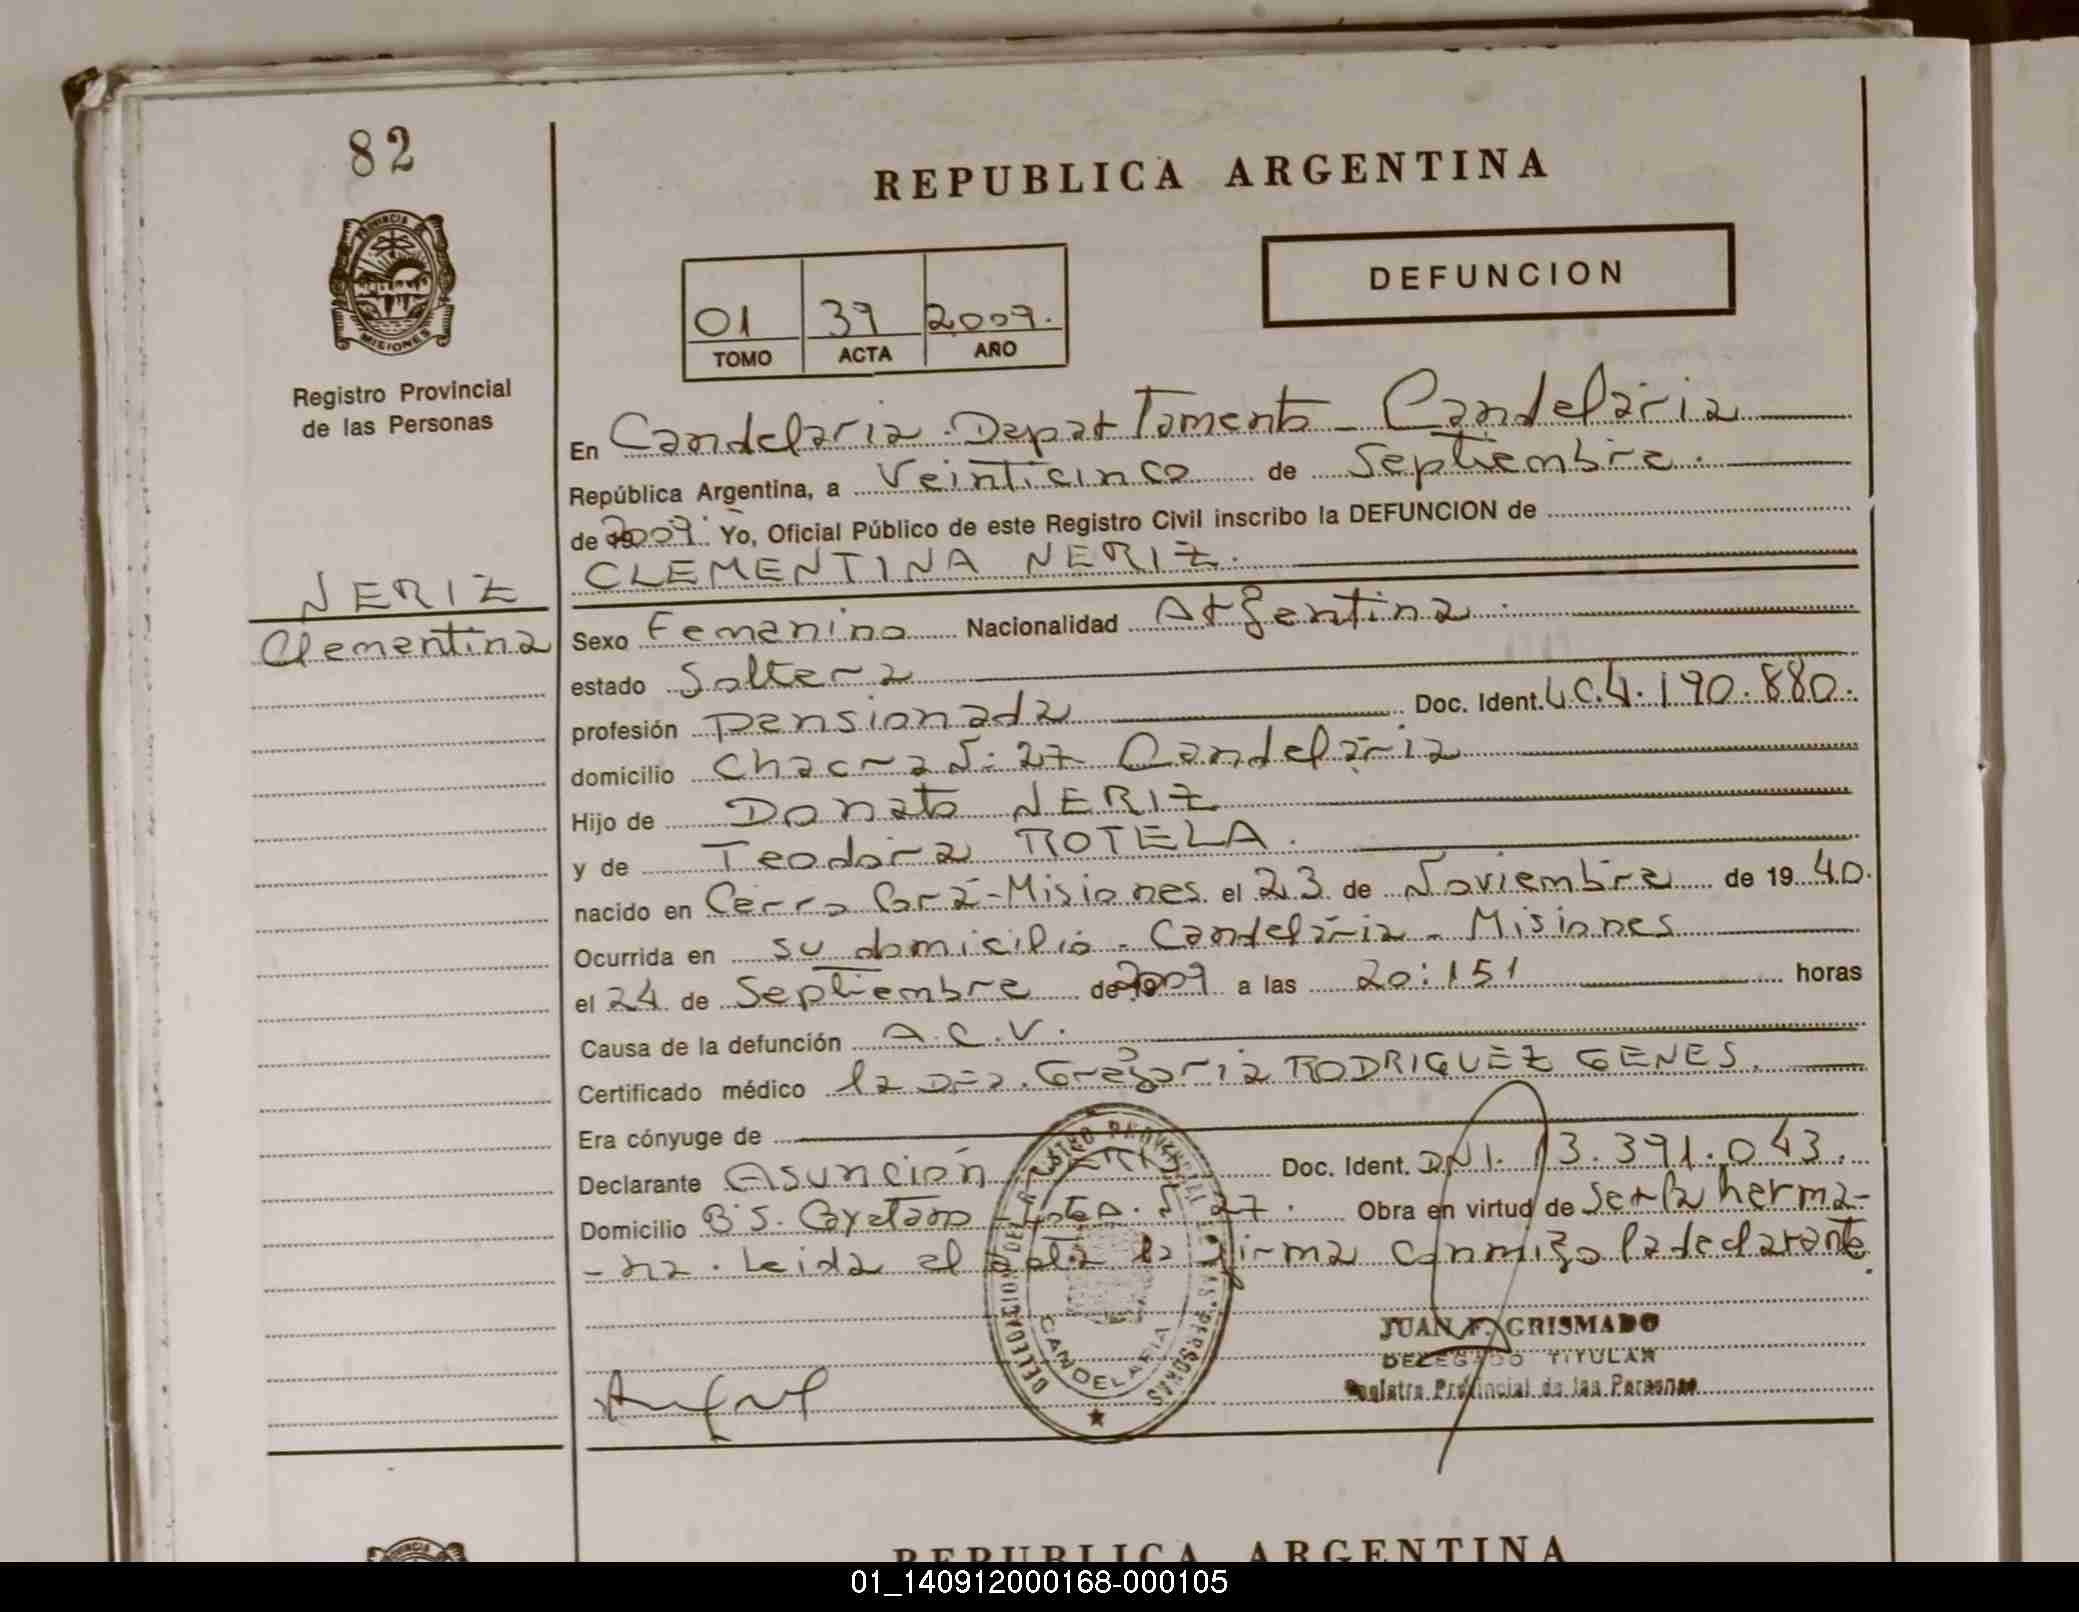 82
REPUBLICA ARGENTINA
PROVINCIA
MISIONES
Registro Provincial
de las Personas
DEFUNCION
01 39 2009.
TOMO ACTA AÑO
En Candelaria. Departamento - Candelaria
República Argentina, a Veinticinco de Septiembre.
de 2009. Yo, Oficial Público de este Registro Civil inscribo la DEFUNCION de
CLEMENTINA NERIZ.
NERIZ
Clementina
Sexo Femenino Nacionalidad Argentina.
estado Soltera
profesión pensionada Doc. Ident. L.C. 4.190.880.
domicilio Chacra N: 27 Candelaria
Hijo de Donato NERIZ
y de Teodora ROTELA.
nacido en Cerro Corá-Misiones. el 23 de Noviembre de 19 40.
Ocurrida en su domicilio - Candelaria - Misiones
el 24 de Septiembre de 2009 a las 20:15' horas
Causa de la defunción A.C.V.
Certificado médico la Dra. Gregoria RODRIGUEZ GENES.
Era cónyuge de
Declarante Asunción NERIZ Doc. Ident. DNI. 13.391.043.
Domicilio B: S. Cayetano 27. Obra en virtud de Ser la herma-
-na. Leida el acta la firma conmigo la declarante.
DELEGACION DEL REGISTRO PROVINCIAL DE LAS PERSONAS
CANDELARIA
JUAN F. GRISMADO
DELEGADO TITULAR
Registro Provincial de las Personas
REPUBLICA ARGENTINA
01_140912000168-000105